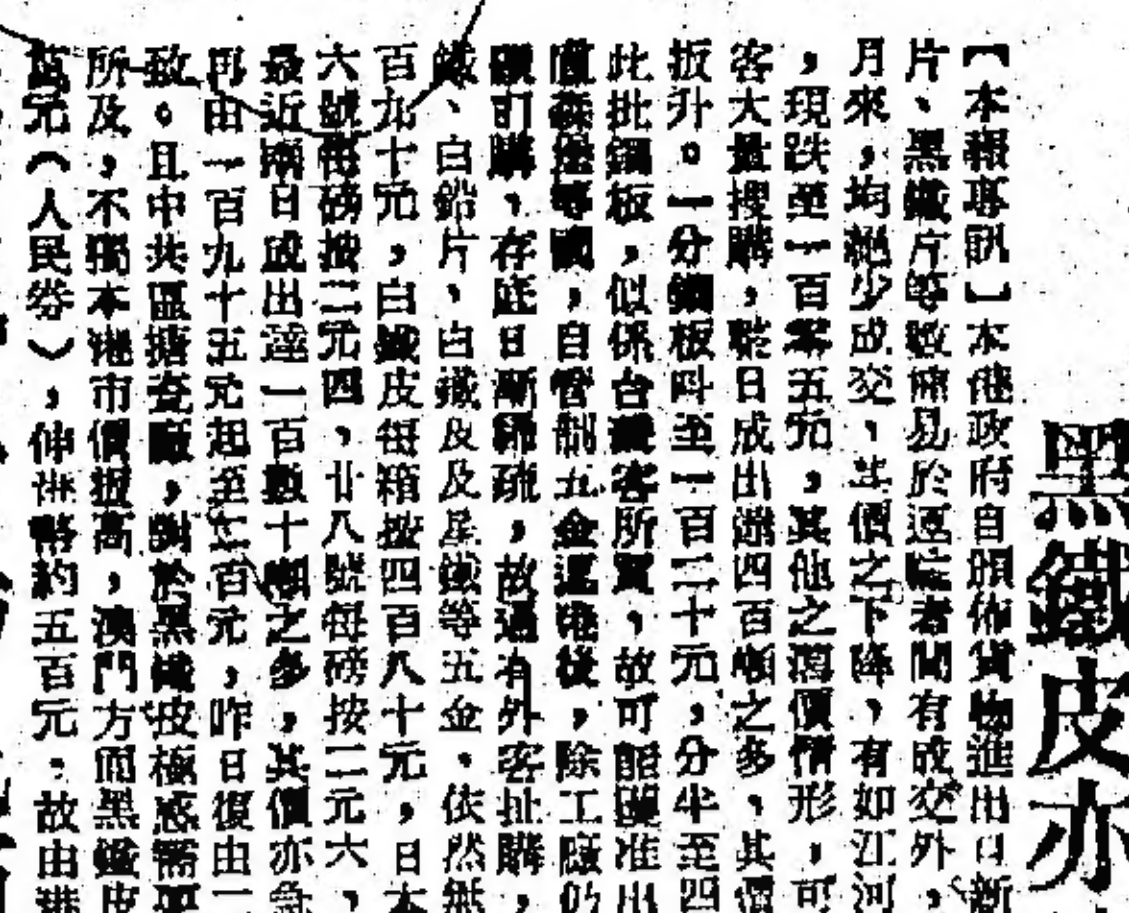 黑鐵皮亦
【本報專訊】本港政府自頒佈貨物進出口新
片、黑鐵片等數種易於運輸者間有成交外,
月來,均絕少成交,其價之下降,有如江河
,現跌至一百零五元,其他之瀉價情形,可
客大量搜購,整日成出達四百噸之多,其價
扳升。一分鋼板叫至一百二十元,分半至四
此批鋼板,似係台灣客所買,故可能獲准出
等國,自管制五金運港後,除工廠仍
購,存底日漸稀疏,故遇有外客扯購,
鐵、白鉛片、白鐵皮及星鐵等五金。依然無
百九十元,白鐵皮每箱按四百八十元,日本
六號每磅按二元四,廿八號每磅按二元六,
最近兩日成出達一百數十噸之多,其價亦急
即由一百九十五元起至二百元,昨日復由二
致。且中共區搪瓷廠,對於黑鐵皮極感需要
所及,不獨本港市價扳高,澳門方面黑鐵皮
萬元(人民券),伸港幣約五百元。故由港